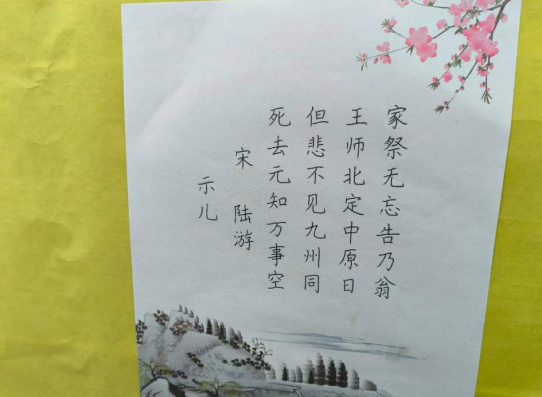 示儿
宋 陆游
死去元知万事空
但悲不见九州同
王师北定中原日
家祭无忘告乃翁